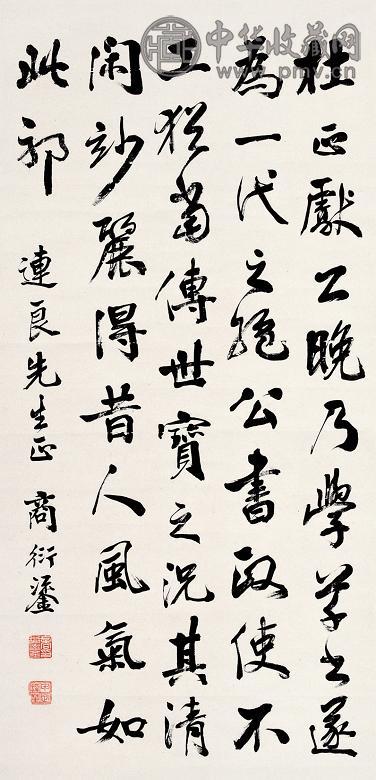 中华收藏网
www.pmv.cn
杜正獻公晚乃學草書遂
為一代之絕公書政使不
工猶當傳世寶之況其清
閑妙麗得昔人風氣如
此耶
連良先生正 商衍鎏